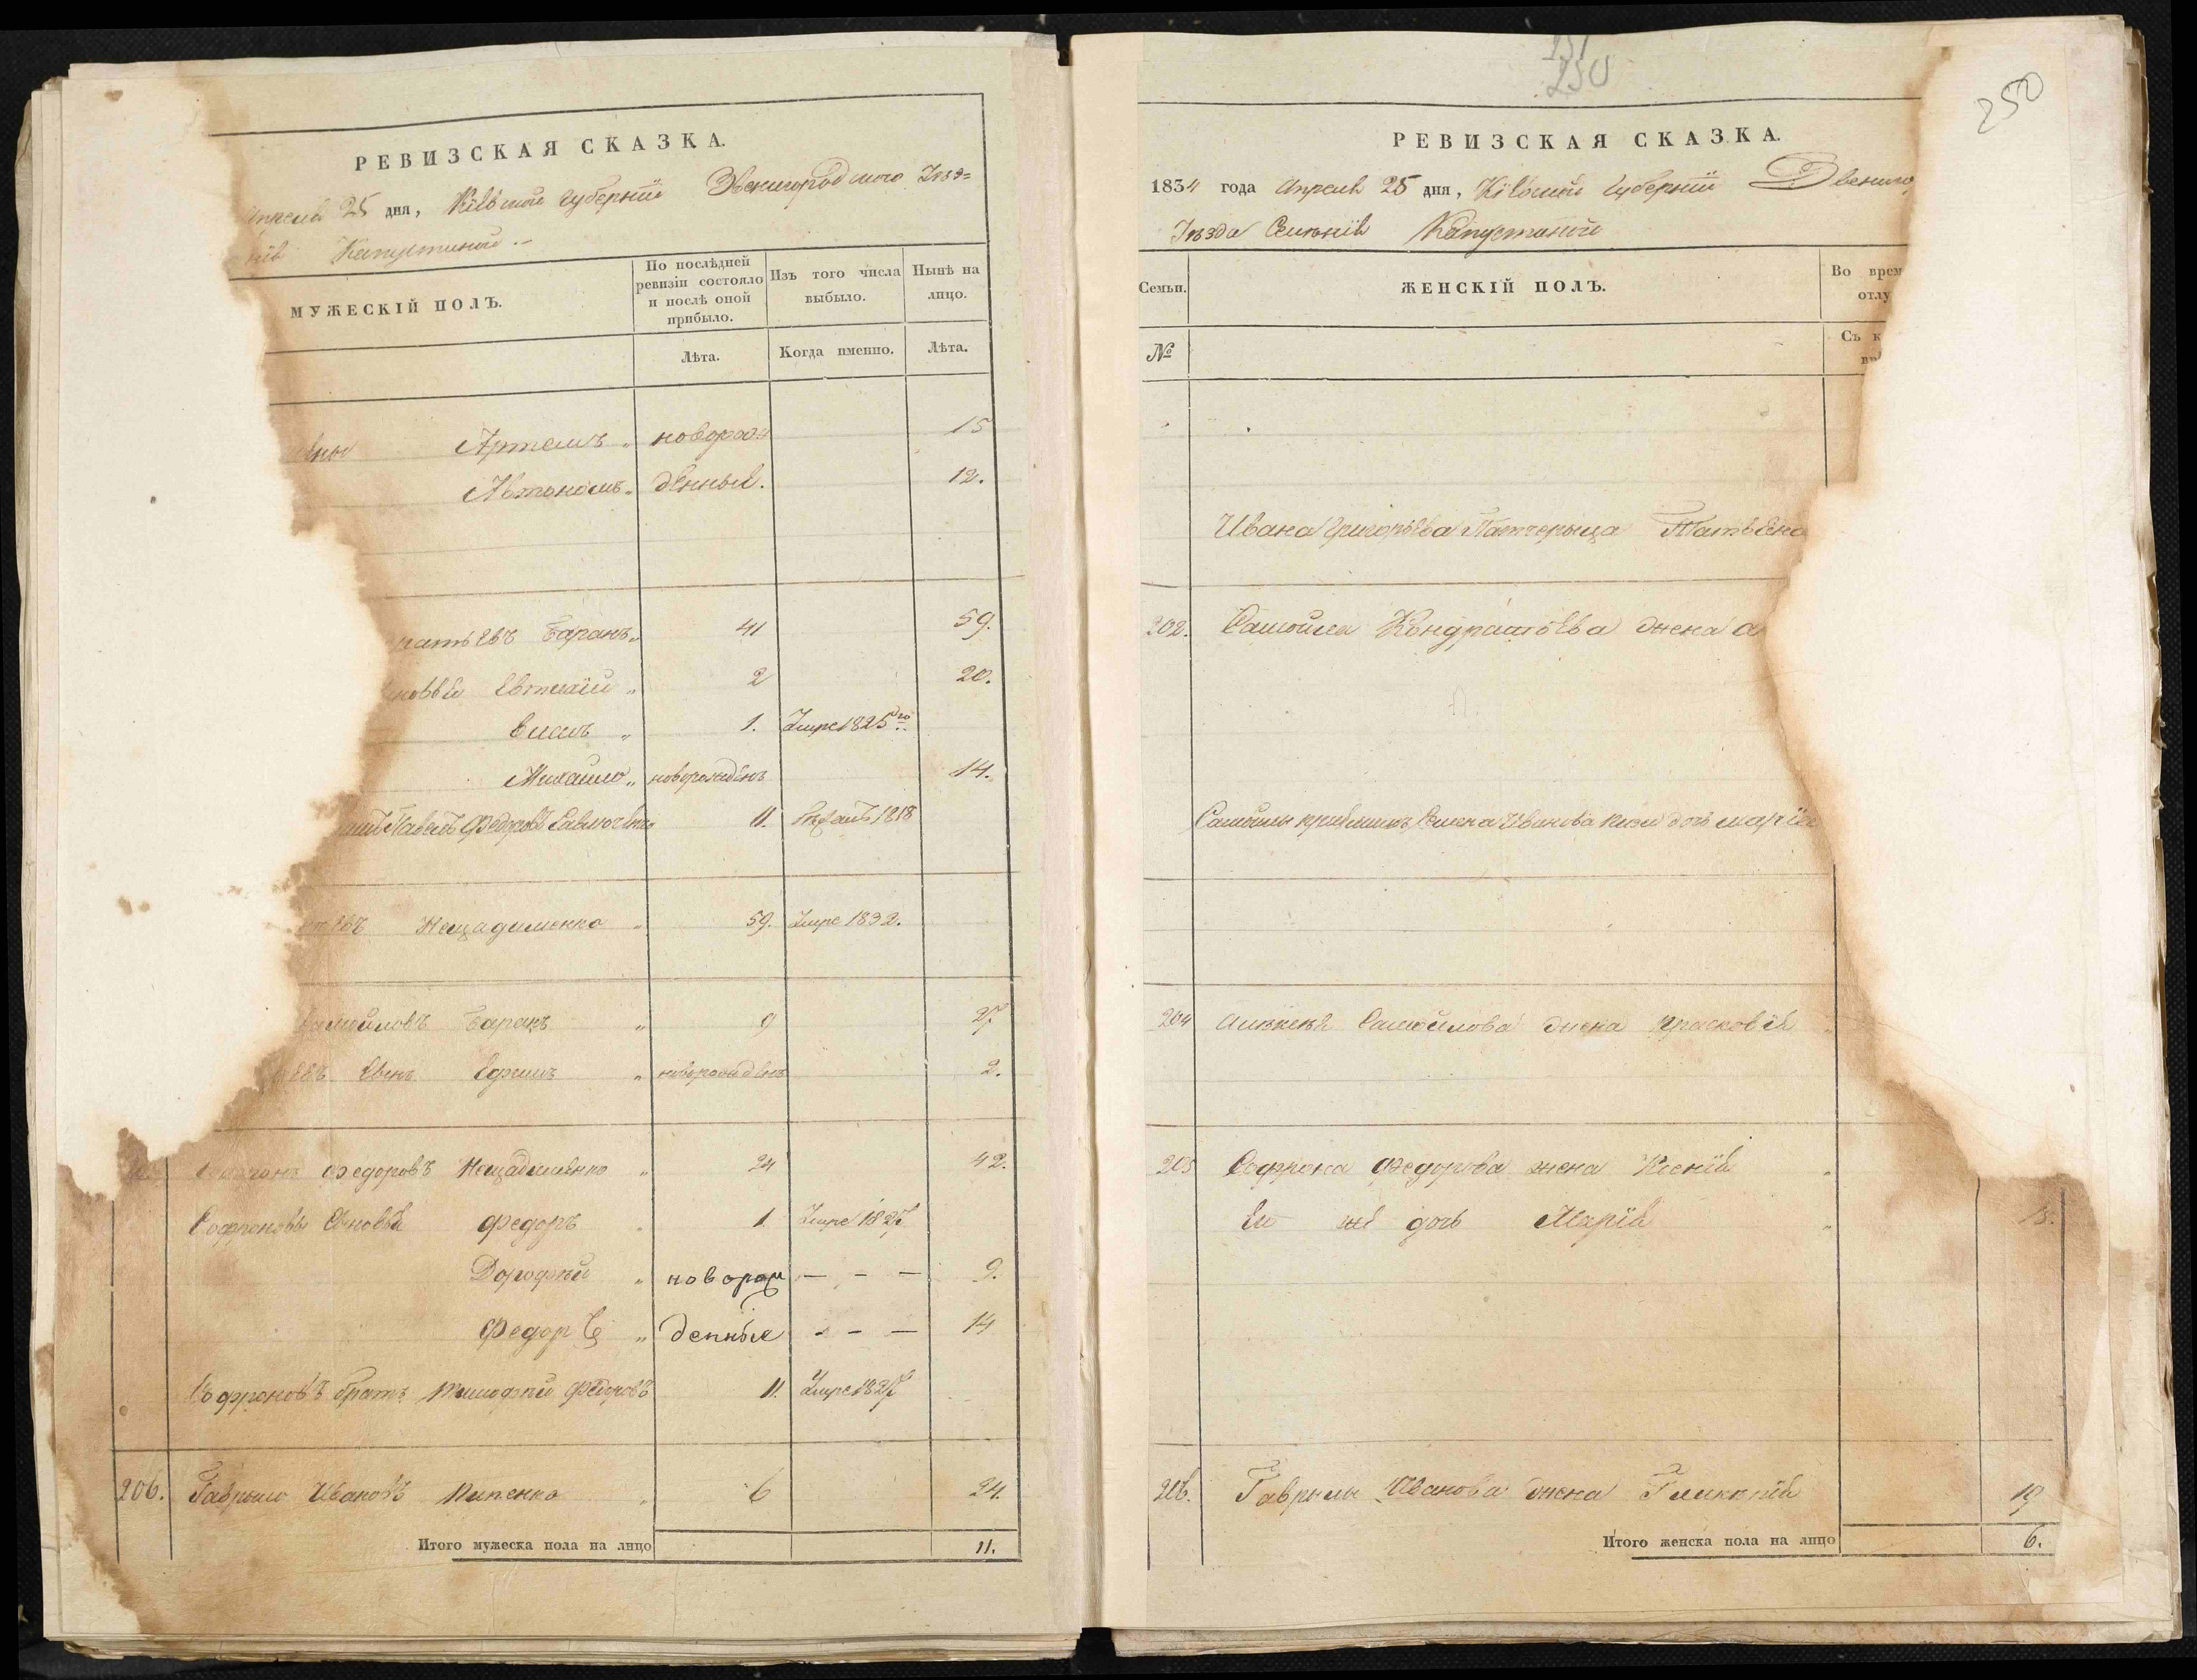 РЕВИЗСКАЯ СКАЗКА.
Апреля 25 дня, Кіевской Губерніи Звенигородскаго Уѣз=
нія Капустиной
МУЖЕСКІЙ ПОЛЪ.
По послѣдней ревизіи состояло и послѣ оной прибыло.
Изъ того числа выбыло.
Нынѣ на лицо.
Лѣта.
Когда именно.
Лѣта.
Артемъ „ новорож 15
Автономъ „ денные. 12.
ратьевъ Баранъ „ 41 59.
новья Евтихій „ 2 20.
Власъ „ 1. Умре 1825го
Михайло „ новорожденъ 14.
Павелъ Федоровъ 11. 1818
Нещадименко „ 59. Умре 1832.
Самойловъ Баранъ „ 9 27
Сынъ Ефимъ „ новорожденъ 2.
Софронъ Федоровъ Нещадименко „ 24 42.
Софроновы Сыновья Федоръ 1 Умре 1827
Дорофей „ новорож — - — 9.
Федоръ „ денные - - — 14
Софроновъ братъ Тимофей Федоровъ 11. Умре 1827
206. Гаврило Ивановъ Пипенко „ 6 24.
Итого мужеска пола на лицо 11.
250
250
РЕВИЗСКАЯ СКАЗКА.
1834 года Апреля 25 дня, Кіевской Губерніи Звениго
Уѣзда Селенія Капустиной
Семьи.
ЖЕНСКІЙ ПОЛЪ.
Во врем
отлу
№
Съ к
Ивана Григорьева Татьяна
202. Самойла Кондратьева жена
Самойлы Семена Иванова дочь Марія
204 Алексея Самойлова жена Прасковія „
205 Софрона Федорова жена Ксенія „
Его же дочь Марія „ 15.
206. Гаврилы Иванова жена Гликерія 19
Итого женска пола на лицо 6.